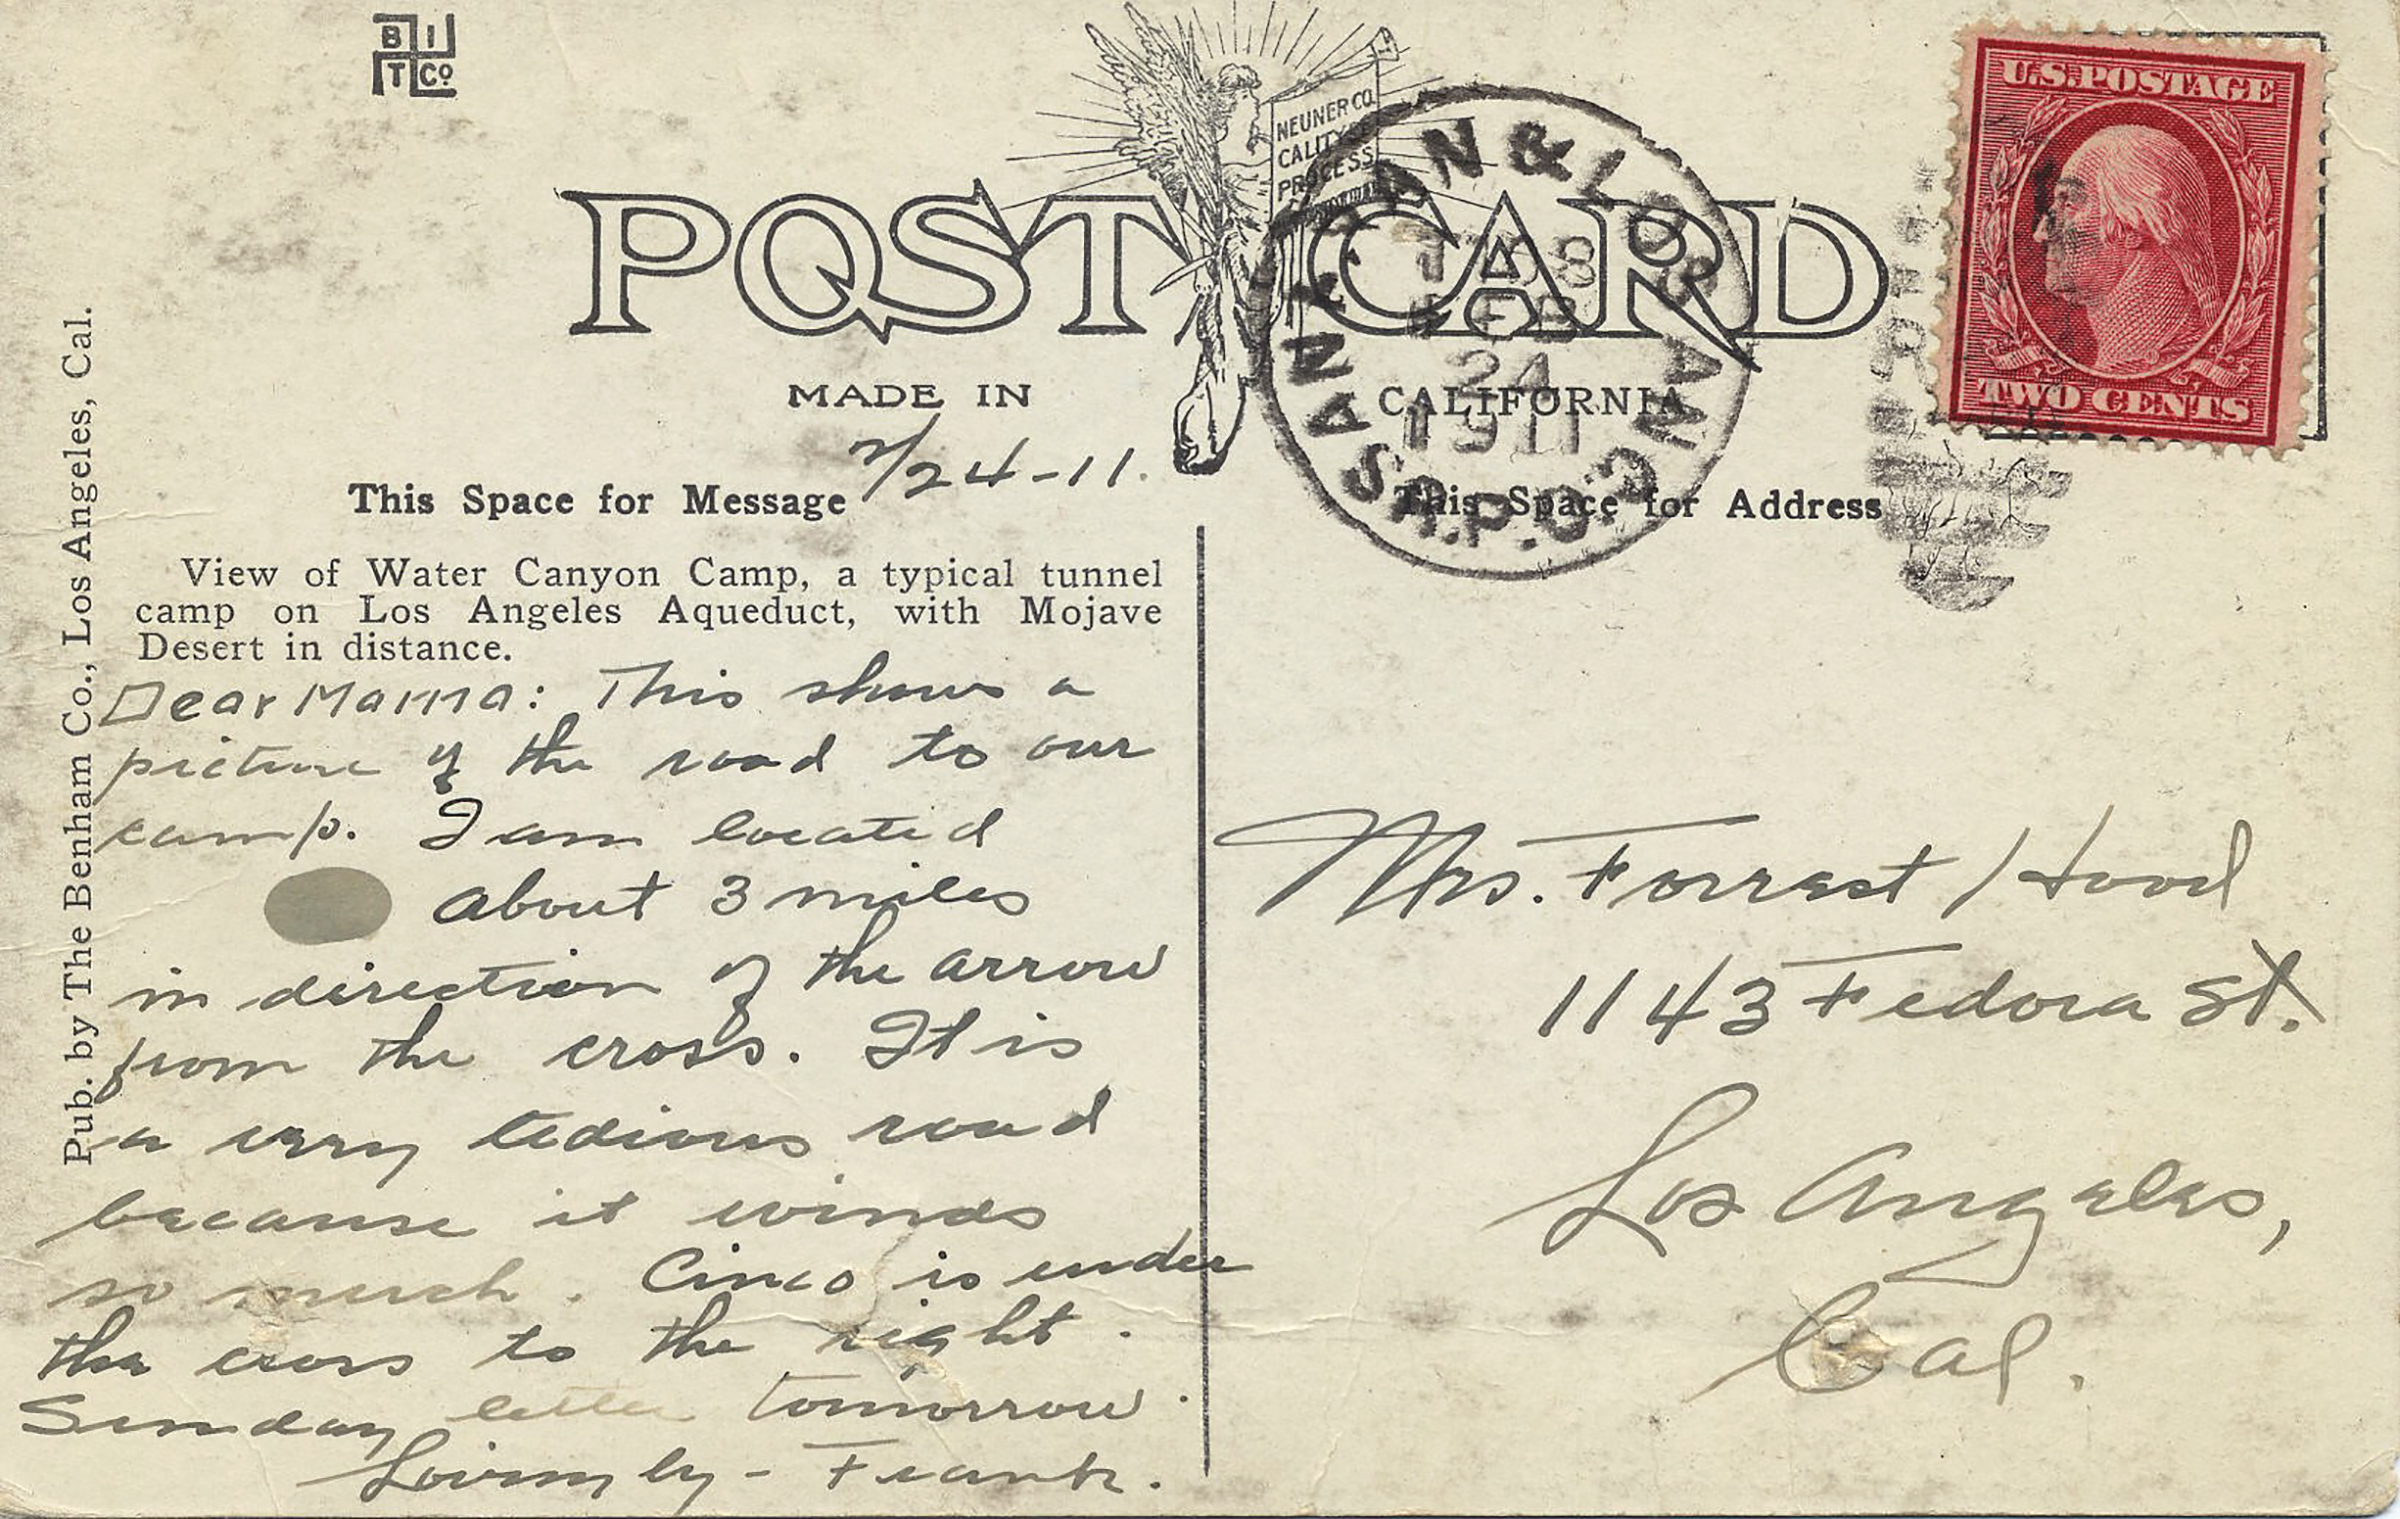 B I
T Co
NEUNER CO.
CALITYPE
PROCESS
POST CARD
MADE IN CALIFORNIA
U.S. POSTAGE
TWO CENTS
SAN FRAN & LOS ANG.
R.P.O.
FEB
24
1911
2/24-11.
This Space for Message
This Space for Address
Pub. by The Benham Co., Los Angeles, Cal.
View of Water Canyon Camp, a typical tunnel
camp on Los Angeles Aqueduct, with Mojave
Desert in distance.
Dear Mama: This shows a
picture of the road to our
camp. I am located
about 3 miles
in direction of the arrow
from the cross. It is
a very tedious road
because it winds
so much. Cinco is under
the cross to the right.
Sunday letter tomorrow.
Lovingly - Frank.
Mrs. Forrest Hood
1143 Fedora St.
Los Angeles,
Cal.